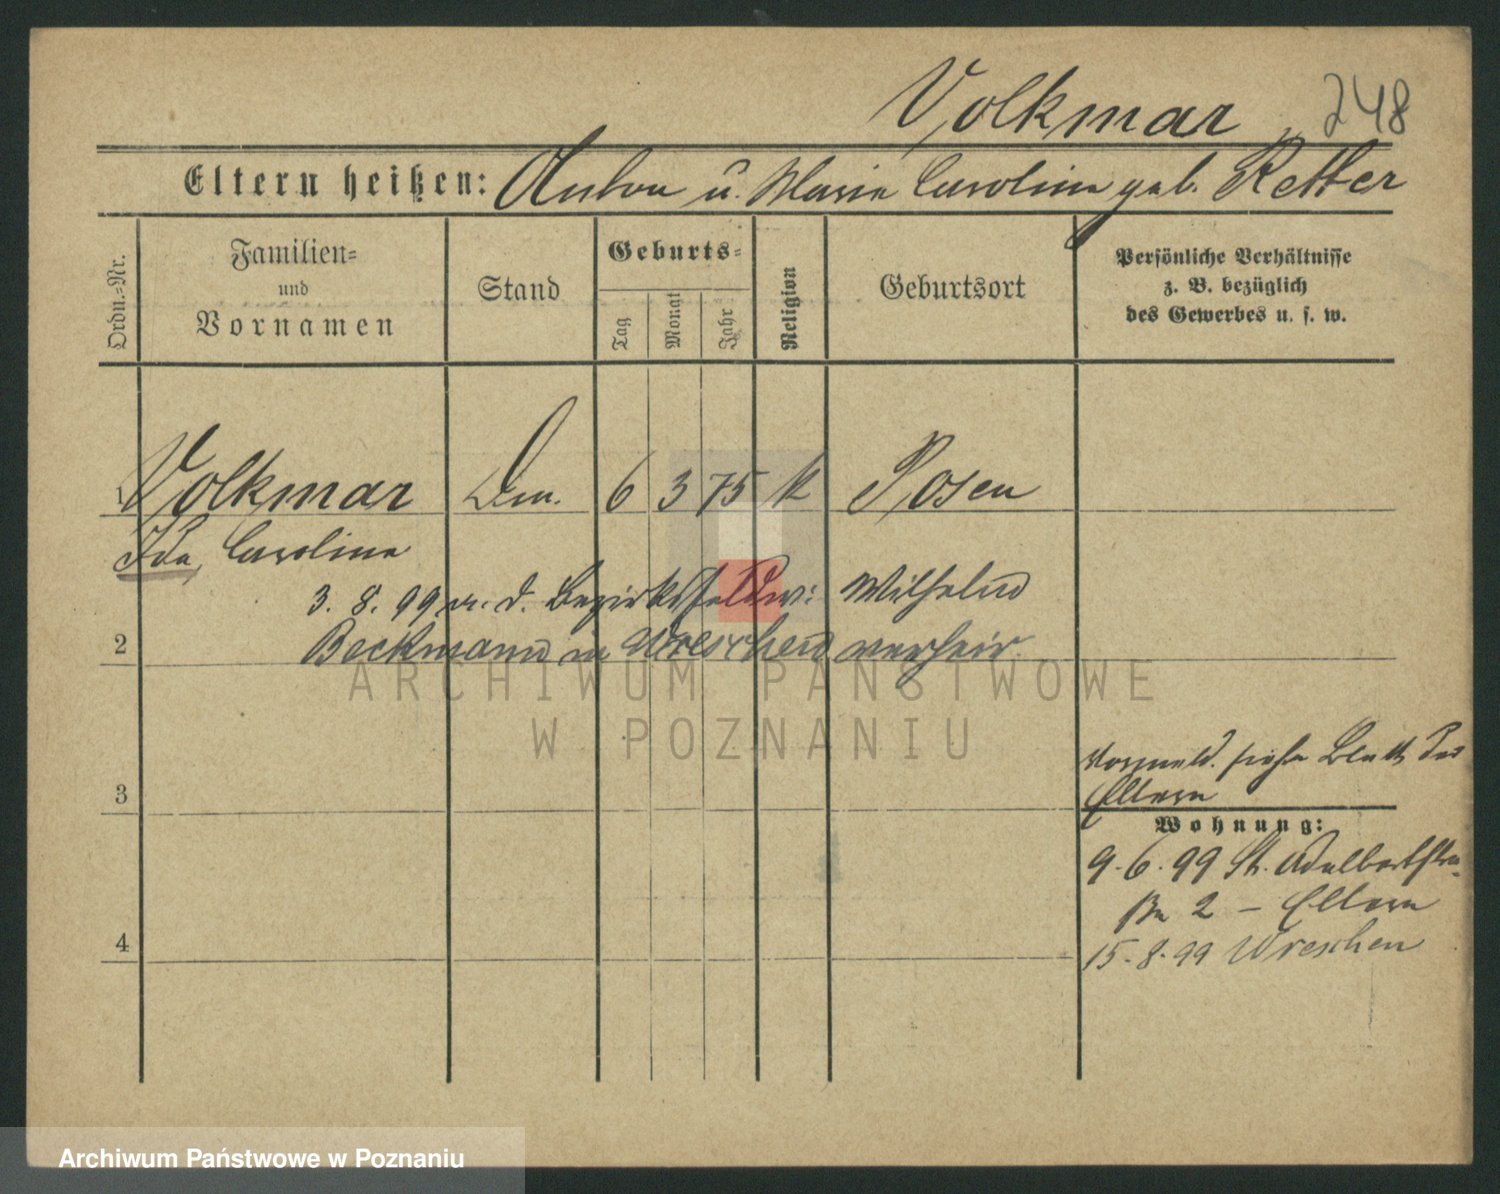 Volkmar 248
Eltern heißen: Anton u. Marie Caroline geb. Retter
Ordn.-Nr.
Familien-
und
Vornamen
Stand
Geburts-
Tag
Monat
Jahr
Religion
Geburtsort
Persönliche Verhältnisse
z. B. bezüglich
des Gewerbes u. s. w.
1 Volkmar 6 3 75 k Posen
Ida, Caroline
3. 8. 99 m. d. Bezirksfeldw: Wilhelm
2 Beckmann in Wreschen verheir.
ARCHIWUM PAŃSTWOWE
W POZNANIU
siehe Blatt der
Eltern
3
Wohnung:
9. 6. 99 St. Adalbertstra-
ße 2 – Eltern
4
15. 8. 99 Wreschen
Archiwum Państwowe w Poznaniu